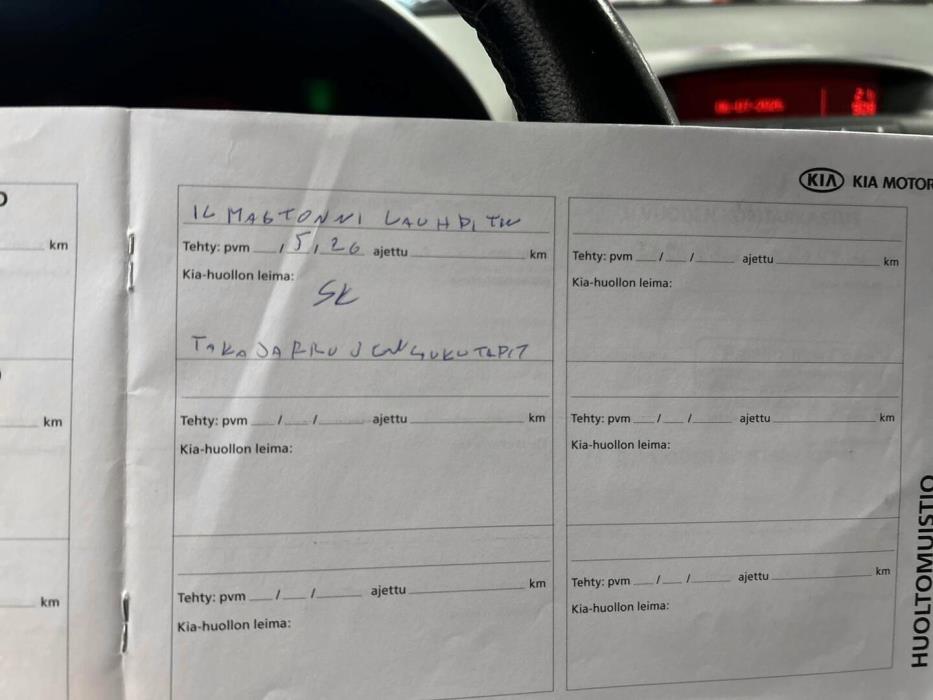 KIA KIA MOTOR
ILMASTOINNI LAUHDUTIN
Tehty: pvm / 5 / 26 ajettu km
Kia-huollon leima:
SK
TAKAJARRUJEN LIUKUTAPIT
Tehty: pvm / / ajettu km
Kia-huollon leima:
Tehty: pvm / / ajettu km
Kia-huollon leima:
Tehty: pvm / / ajettu km
Kia-huollon leima:
Tehty: pvm / / ajettu km
Kia-huollon leima:
Tehty: pvm / / ajettu km
Kia-huollon leima:
km
km
km
HUOLTOMUISTIO